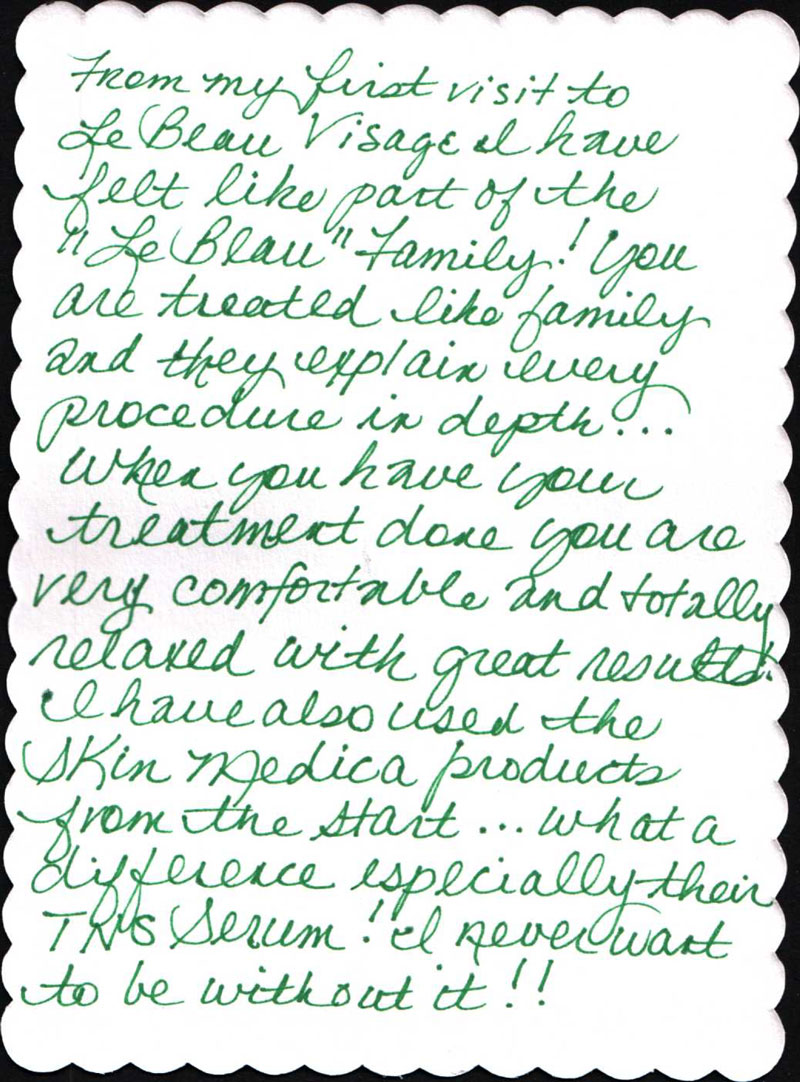 From my first visit to
Le Beau Visage I have
felt like part of the
"Le Beau" Family! You
are treated like family
and they explain every
procedure in depth...
When you have your
treatment done you are
very comfortable and totally
relaxed with great results!
I have also used the
Skin Medica products
from the start... what a
difference especially their
TNS Serum! I never want
to be without it!!